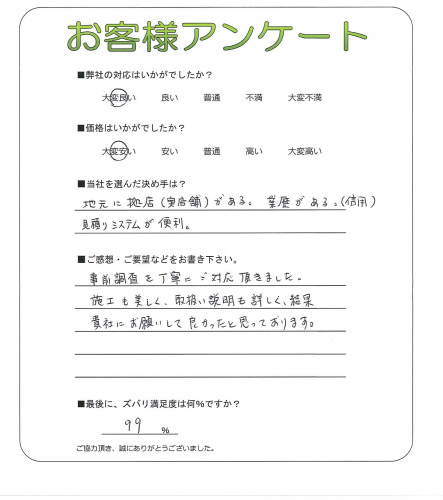 お客様アンケート
■弊社の対応はいかがでしたか?
大変良い 良い 普通 不満 大変不満
■価格はいかがでしたか?
大変安い 安い 普通 高い 大変高い
■当社を選んだ決め手は?
地元に拠店(実店舗)がある。業歴がある。(信用)
見積りシステムが便利。
■ご感想・ご要望などをお書き下さい。
事前調査を丁寧にご対応頂きました。
施工も美しく、取扱い説明も詳しく、結果
貴社にお願いして良かったと思っております。
■最後に、ズバリ満足度は何%ですか?
99 %
ご協力頂き、誠にありがとうございました。